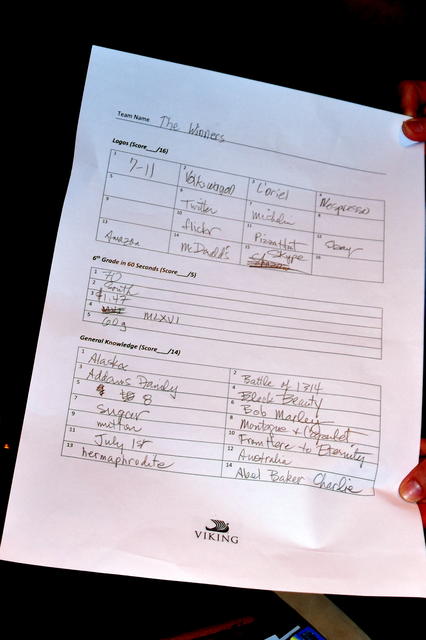 Team Name The Winners
Logos (Score___/16)
1 7-11 2 Volkswagon 3 L'oriel 4 Nespresso
5 6 Twitter 7 Michelin 8
9 10 flickr 11 Pizza Hut 12 ebay
13 Amazon 14 McDonald's 15 Skype 16
6th Grade in 60 Seconds (Score___/5)
1 70
2 South
3 $1.47
4 MLXVI
5 60g
General Knowledge (Score___/14)
1 Alaska 2 Battle of 1314
3 Addams Family 4 Black Beauty
5 8 6 Bob Marley
7 sugar 8 Montague & Capulet
9 mutton 10 From Here to Eternity
11 July 1st 12 Australia
13 hermaphrodite 14 Abel Baker Charlie
VIKING